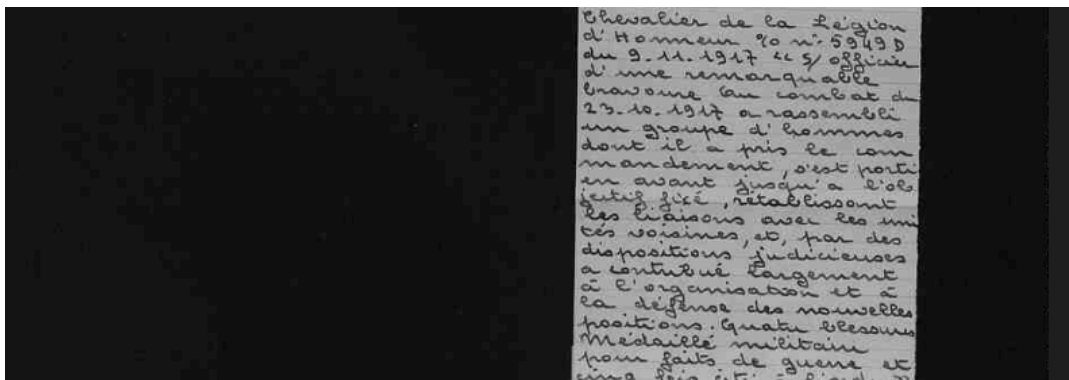 Chevalier de la Légion
d'Honneur % n° 5949 D
du 9.11.1917 "S/officier
d'une remarquable
bravoure Au combat du
23.10.1917 a rassemblé
un groupe d'hommes
dont il a pris le com
mandement, s'est porté
en avant jusqu'à l'ob
jectif fixé, rétablissant
les liaisons avec les uni
tés voisines, et, par des
dispositions judicieuses
a contribué largement
à l'organisation et à
la défense des nouvelles
positions. Quatre blessures
Médaillé militaire
pour faits de guerre et
cinq fois cité à